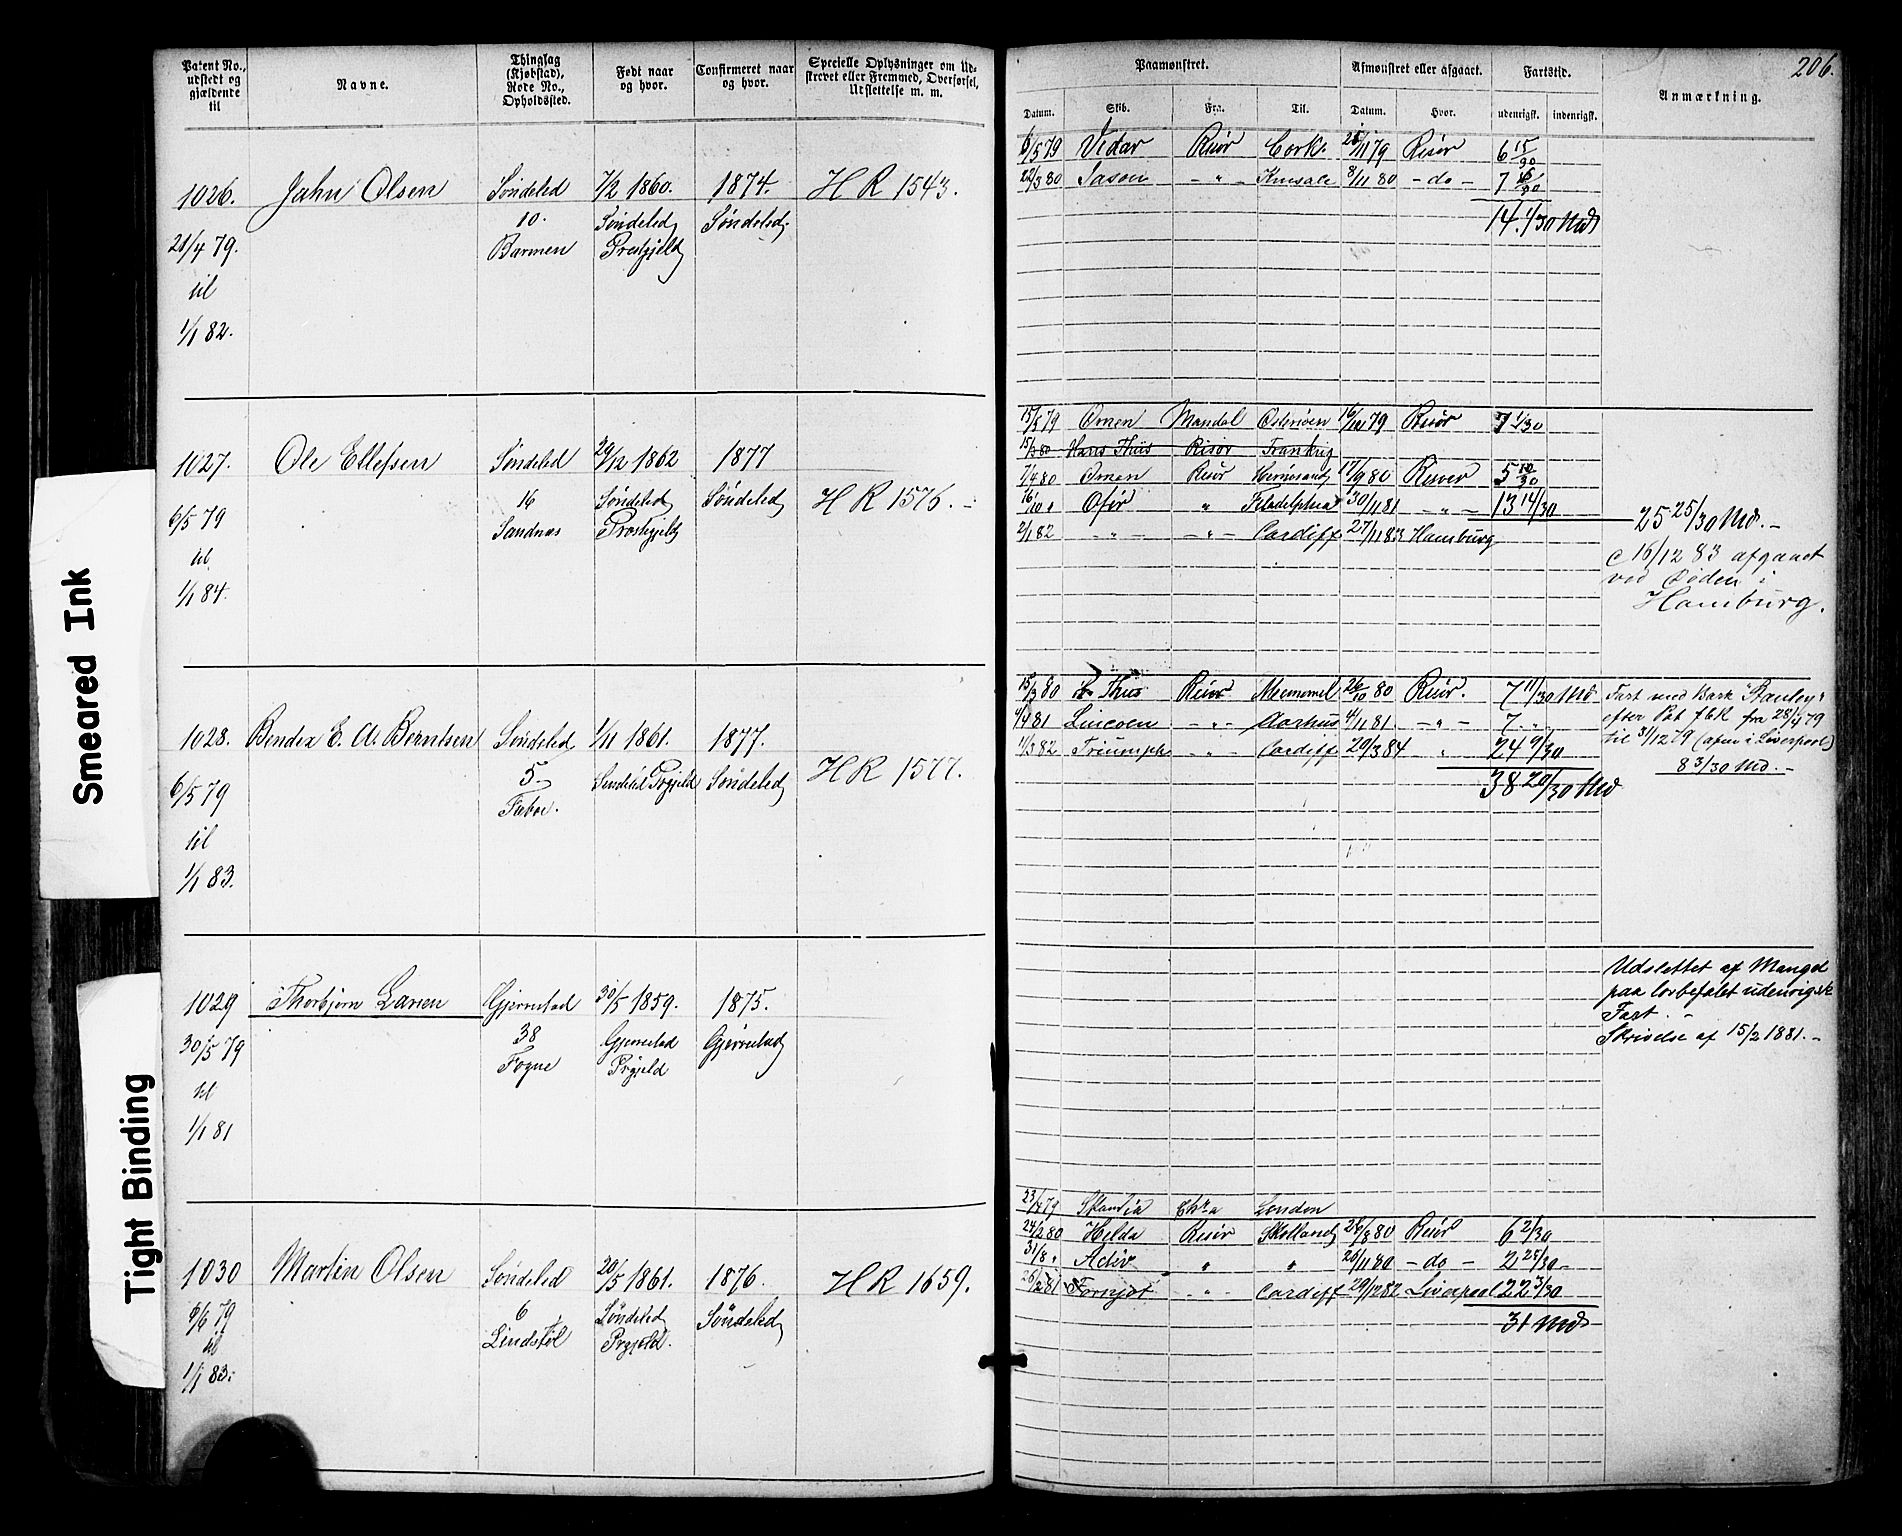 Smeared Ink
Tight Binding
206.
Patent No., udstedt og gjældende til
Navne.
Thinglag (Kjøbstad), Rode No., Opholdssted.
Født naar og hvor.
Confirmeret naar og hvor.
Specielle Oplysninger om Udskrevet eller Fremmed, Overførsel, Udslettelse m. m.
Paamønstret.
Afmønstret eller afgaaet.
Fartstid.
Anmærkning.
Datum. Skib. Fra. Til. Datum. Hvor. udenrigst. indenrigst.
1026. Jahn Olsen Søndeled 7/2 1860. 1874. HR 1543.
10. Søndeled Søndeled
21/4 79. Barmen Prestgjeld
til
1/1 82.
6/5 79 Vedar Risør Cork 79 Risør 6 15/30
22/3 80 Jason - " - Kinsale 8/11 80 - do - 7 16/30
14. 1/30 Md
1027. Ole Ellefsen Søndeled 29/12 1862 1877
16 Søndeled Søndeled HR 1576. -
6/5 79 Sandnæs Prestegjeld
til
1/1 84.
15/5 79 Ornen Mandal Østersøen 16/12 79 Risør 7 1/30
15/3 80 Hans Thiis Risør Frankrig
7/4 80 Ornen Risør Hernøsand 17/9 80 Risør 5 10/30
16/10 " Ofir " Filadelphia 30/11 81 - " - 13 14/30
2/1 82 - " - - " - Cardiff 27/11 83 Hamburg
25 25/30 Md. -
c 16/12 83 afgaaet
ved Døden i
Hamburg.
1028. Bendix E. A. Berntsen Søndeled 1/11 1861. 1877.
5 Søndeled Prgjeld Søndeled HR 1577.
6/5 79
til
1/1 83.
15/3 80 H. Thiis Risør Memmel 26/10 80 Risør. 7 11/30 Md.
4/4 81 Lincoln - " - Aarhus 4/11 81 - " - 7 "
1/3 82 Triumph - " - Cardiff 20/3 84 " 24 9/30
38 20/30 Md
Fart med Bark "Stanley"
efter Pat JbK fra 28/4 79
til 31/12 79 (afm i Liverpool)
8 3/30 Md. -
1029 Thorbjørn Larsen Gjerrestad 30/5 1859. 1875.
38 Gjerrestad Gjerrestad
30/5 79 Fogne Prgjeld
til
1/1 81
Udslettet af Mangel
paa lovbefalet udenrigsk
Fart. -
Skrivelse af 15/2 1881. -
1030 Martin Olsen Søndeled 20/5 1861. 1876. HR 1659.
6 Søndeled Søndeled
6/6 79 Lindstøl Prgjeld.
til
1/1 83.
79 Skandia Chr.a London
24/2 80 Helda Risør Skotland 26/8 80 Risør 6 2/30
31/8 " Activ " " 26/11 80 - do - 2 25/30 -
26/2 81 Fornjot - " - Cardiff 29/12 82 Liverpool 22 3/30
31 Md -